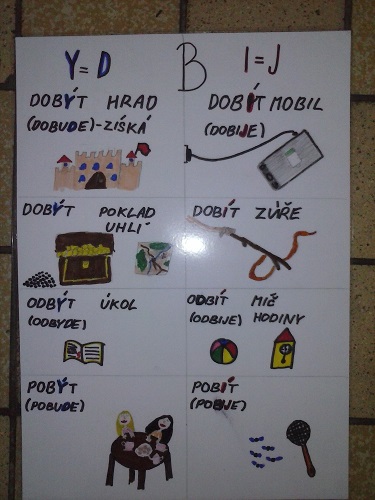 Y=D B I=J
DOBÝT HRAD
(DOBUDE)-ZÍSKÁ
DOBÍT MOBIL
(DOBIJE)
DOBÝT POKLAD
UHLÍ
DOBÍT ZVÍŘE
ODBÝT ÚKOL
(ODBYDE)
ODBÍT MÍČ
(ODBIJE) HODINY
POBÝT
(POBUDE)
POBÍT
(POBIJE)